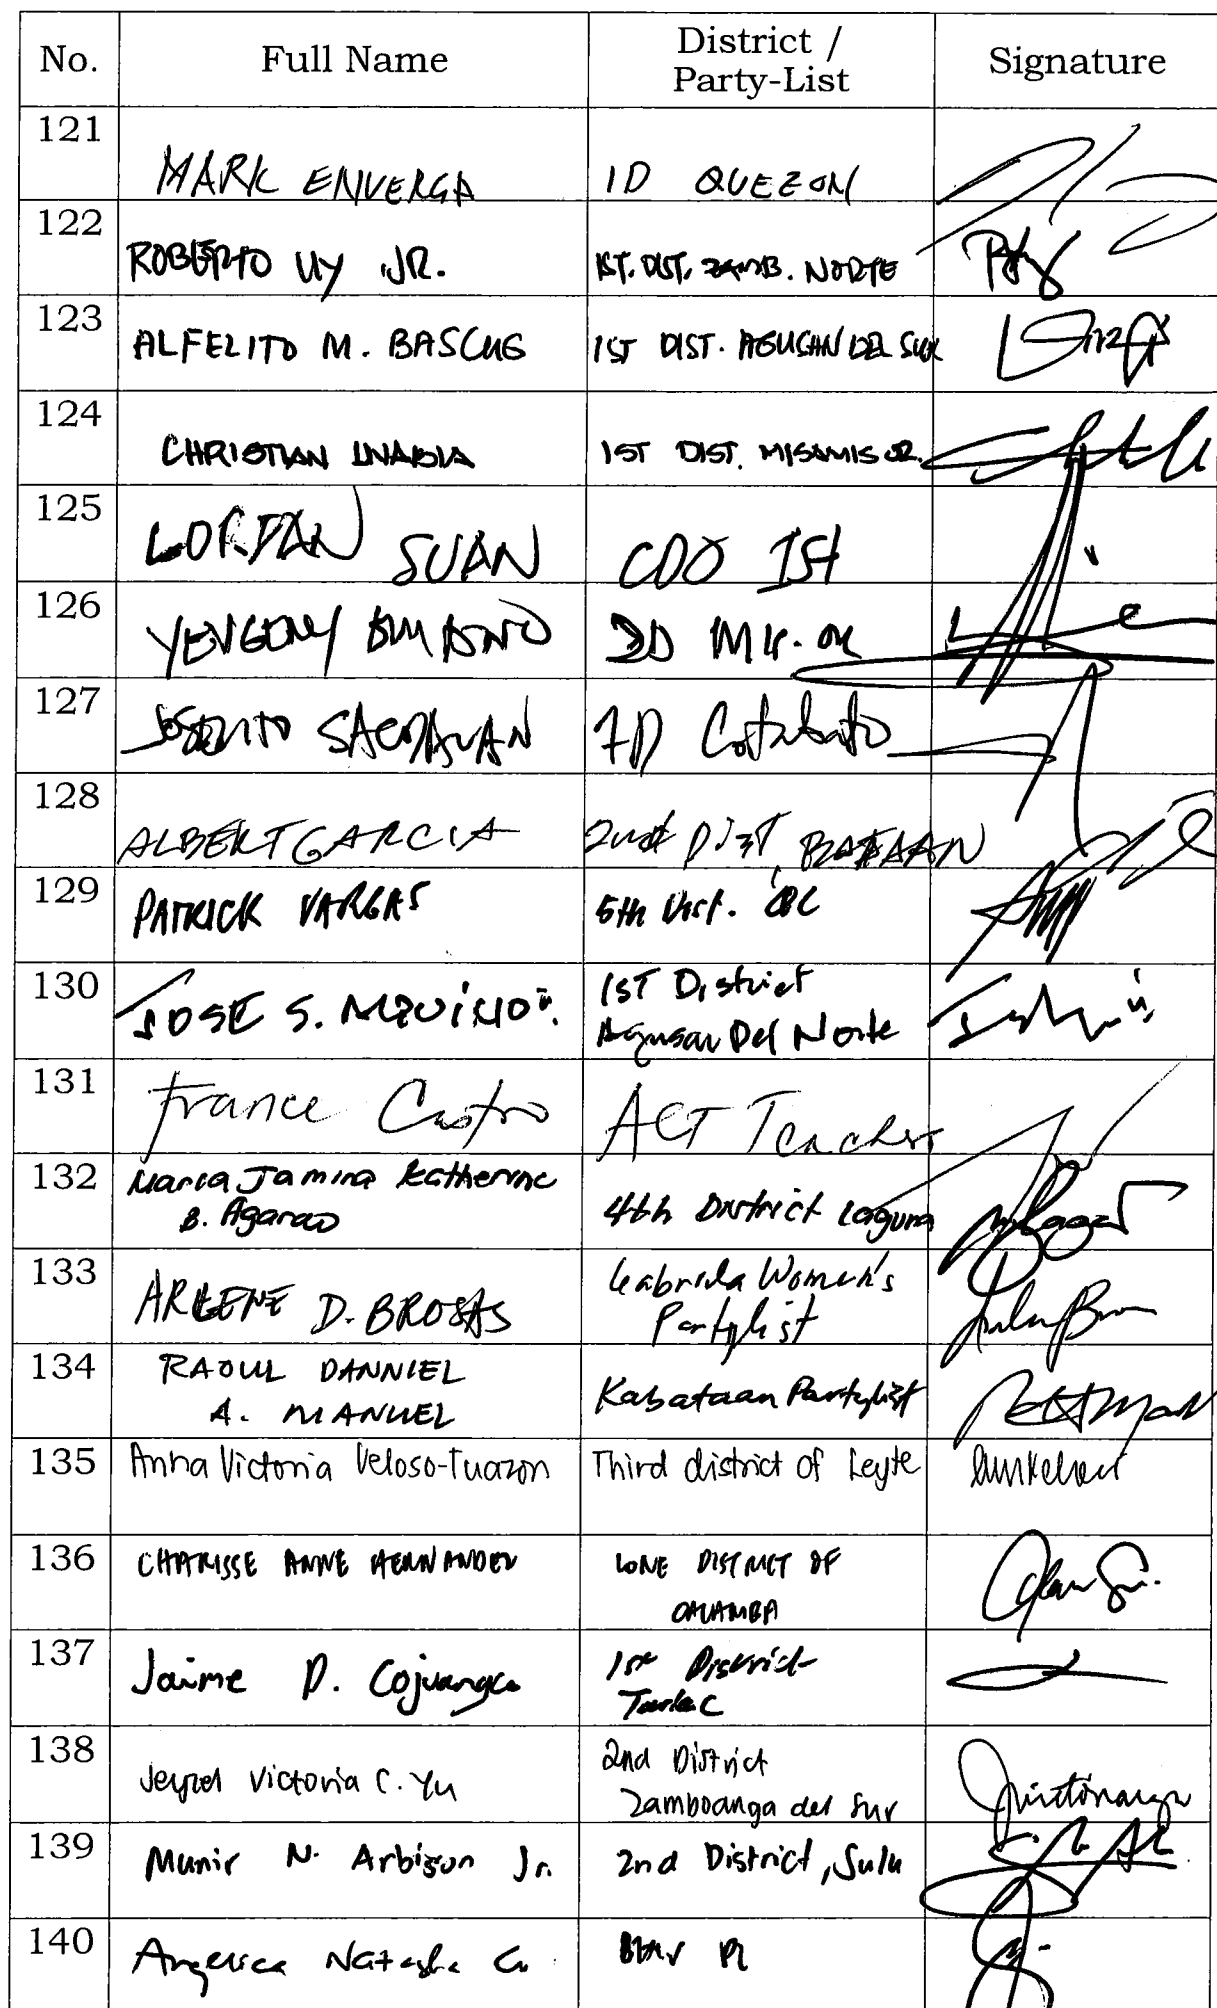 No. Full Name District / Party-List Signature
121 MARK ENVERGA 1D QUEZON
122 ROBERTO UY JR. 1ST. DIST. ZAMB. NORTE
123 ALFELITO M. BASCUG 1ST DIST. AGUSAN DEL SUR
124 CHRISTIAN UNABIA 1ST DIST. MISAMIS OR.
125 LORDAN SUAN CDO 1ST
126 YEVGENY EMANO 2D MIS. OR
127 JOSELITO SACDALAN 1D Cotabato
128 ALBERT GARCIA 2nd DIST, BATAAN
129 PATRICK VARGAS 5th Dist. QC
130 JOSE S. AQUINO II. 1ST District
Agusan Del Norte
131 France Castro ACT Teachers
132 Maria Jamina Katherine
B. Agarao 4th District Laguna
133 ARLENE D. BROSAS Gabriela Women's
Partylist
134 RAOUL DANNIEL
A. MANUEL Kabataan Partylist
135 Anna Victoria Veloso-Tuazon Third district of Leyte
136 CHARISSE ANNE HERNANDEZ LONE DISTRICT OF
CALAMBA
137 Jaime D. Cojuangco 1st District
Tarlac
138 Jeyzel Victoria C. Yu 2nd District
Zamboanga del Sur
139 Munir N. Arbison Jr. 2nd District, Sulu
140 Angelica Natasha Co BHW PL